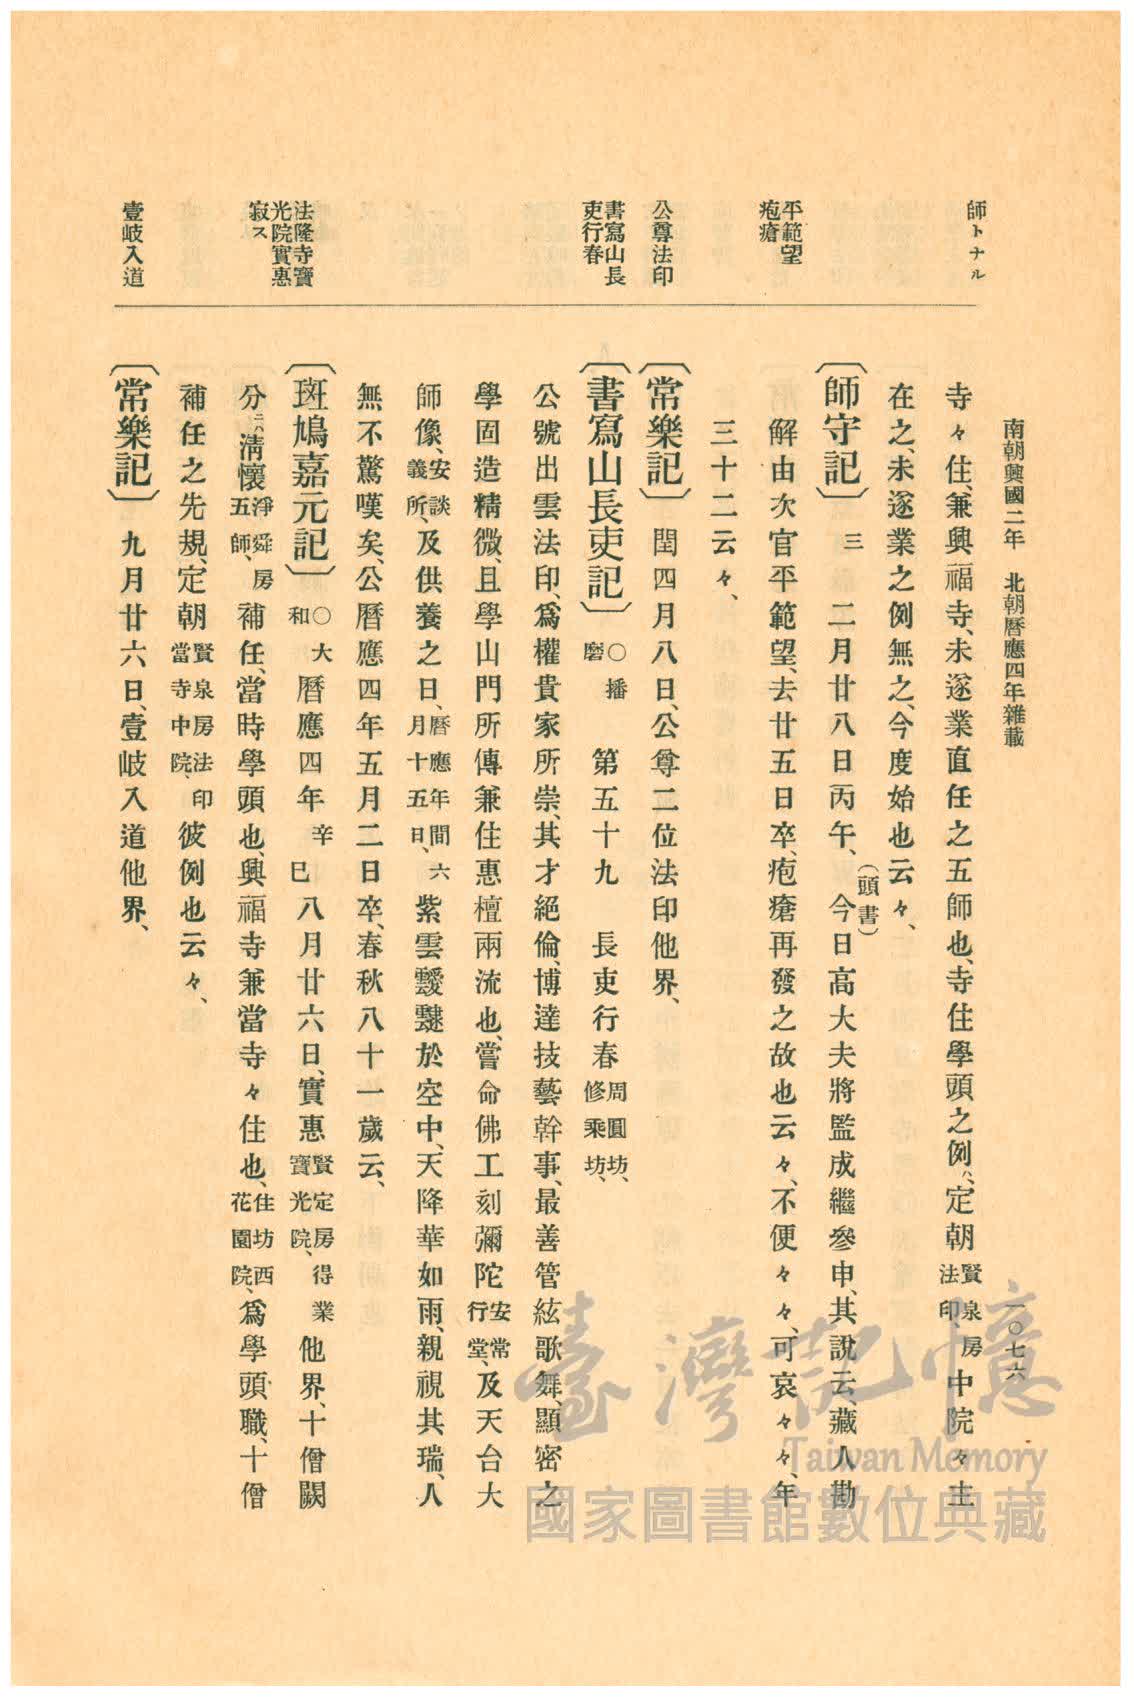 南朝興國二年 北朝曆應四年雜載
一〇七六
師トナル
平範望
疱瘡
公尊法印
書寫山長
吏行春
法隆寺寶
光院實惠
寂ス
壹岐入道
寺々住、兼興福寺、未遂業直任之五師也、寺住學頭之例ハ、定朝賢泉房法印、中院々主
在之、未遂業之例無之、今度始也云々、
〔師守記〕三 二月廿八日丙午、(頭書)今日高大夫將監成繼參申、其說云、藏人勘
解由次官平範望、去廿五日卒、疱瘡再發之故也云々、不便々々、可哀々々、年
三十二云々、
〔常樂記〕閏四月八日、公尊二位法印他界、
〔書寫山長吏記〕〇播磨 第五十九 長吏行春周圓坊、修乘坊、
公號出雲法印、爲權貴家所崇、其才絕倫、博達技藝幹事、最善管絃歌舞、顯密之
學固造精微、且學山門所傳兼住惠檀兩流也、嘗命佛工刻彌陀安常行堂、及天台大
師像、安談義所、及供養之日、曆應年間六月十五日、紫雲靉靆於空中、天降華如雨、親視其瑞、人
無不驚嘆矣、公曆應四年五月二日卒、春秋八十一歲云、
〔斑鳩嘉元記〕〇大和 曆應四年辛巳八月廿六日、實惠賢定房得業寶光院、他界、十僧闕
分ニハ淸懷淨舜房五師、補任、當時學頭也、興福寺兼當寺々住也、住坊西花園院、爲學頭職、十僧
補任之先規、定朝賢泉房法印當寺中院、彼例也云々、
〔常樂記〕九月廿六日、壹岐入道他界、
臺灣記憶
Taiwan Memory
國家圖書館數位典藏